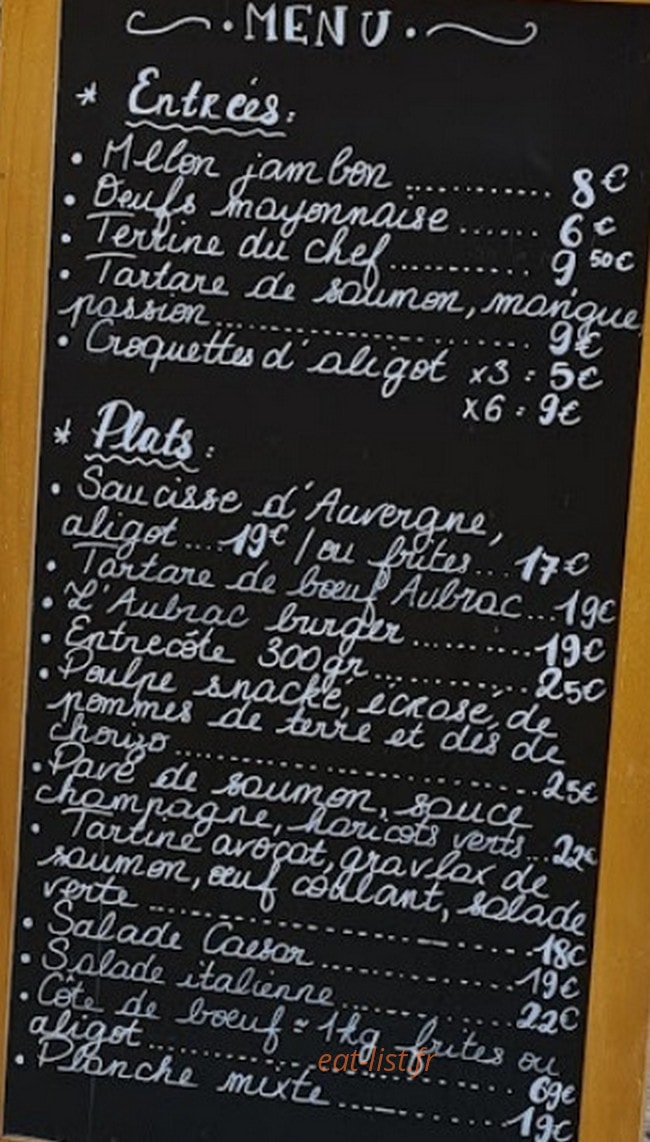 MENU
* Entrées :
• Mélon jambon ............ 8€
• Oeufs mayonnaise ...... 6€
• Terrine du chef ........... 9 50€
• Tartare de saumon, mangue,
passion ......................... 9€
• Croquettes d'aligot x3 : 5€
x6 : 9€
* Plats :
• Saucisse d'Auvergne,
aligot .... 19€ / ou frites ... 17€
• Tartare de boeuf Aubrac ... 19€
• L'Aubrac burger .......... 19€
• Entrecôte 300gr ............ 25€
• Poulpe snacké, écrasé de
pommes de terre et dés de
chorizo ............................ 25€
• Pavé de saumon, sauce
champagne, haricots verts ... 22€
• Tartine avocat, gravlax de
saumon, œuf coulant, salade
verte ............................ 18€
• Salade Caesar ............... 19€
• Salade italienne ............ 22€
• Côte de boeuf ≈ 1kg frites ou
aligot ............................ 69€
• Planche mixte .............. 19€
eat-list.fr